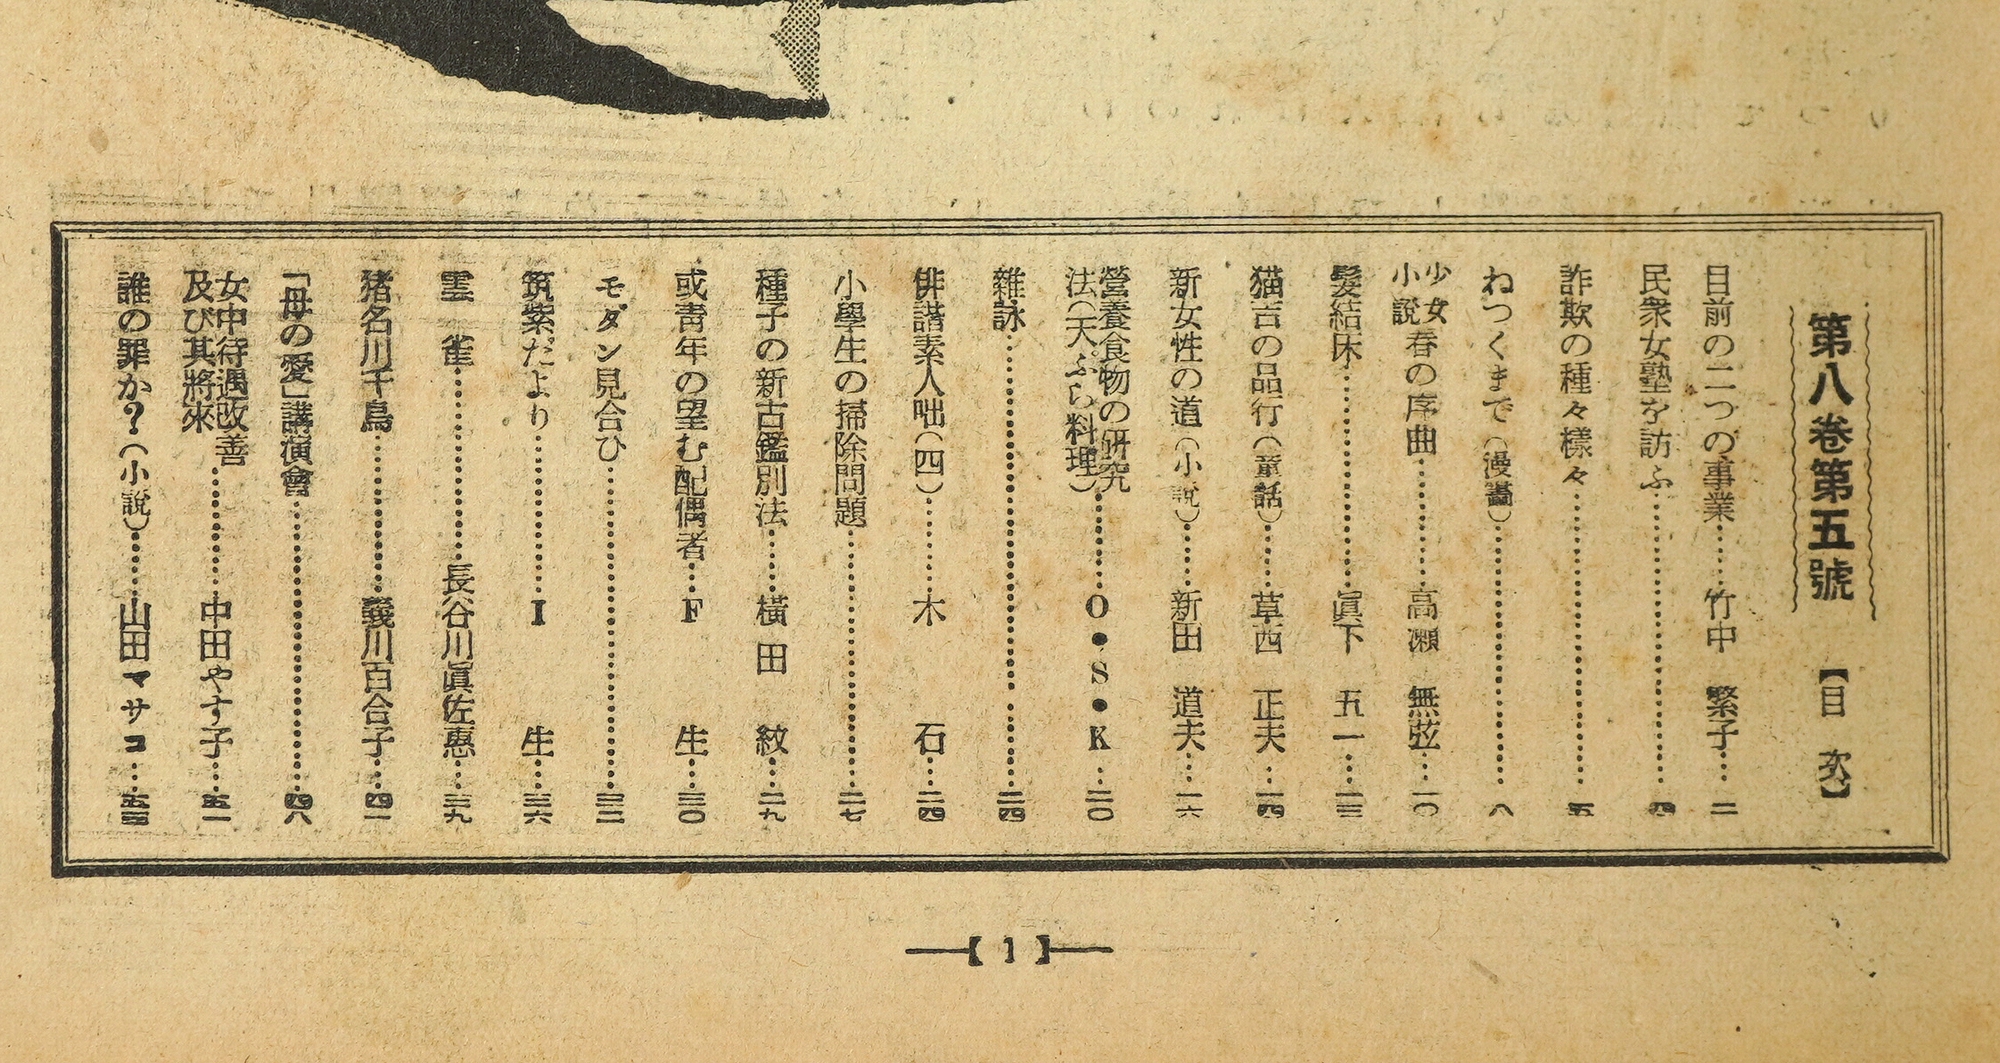 第八卷第五號 【目次】
目前の二つの事業……竹中 繁子…二
民衆女塾を訪ふ……四
詐欺の種々樣々……五
ねつくまで（漫畵）……八
少女小說 春の序曲……高瀬 無弦…一〇
髮結床……眞下 五一…一三
猫吉の品行（童話）……草西 正夫…一四
新女性の道（小說）……新田 道夫…一六
營養食物の研究法（天ぷら料理）……O・S・K…二〇
雜詠……二四
俳諧素人咄（四）……木 石…二四
小學生の掃除問題……二七
種子の新古鑑別法……橫田 紋…二九
或靑年の望む配偶者…F 生…三〇
モダン見合ひ……三二
筑紫だより……I 生…三六
雲 雀……長谷川眞佐惠…三九
猪名川千鳥……義川百合子…四一
「母の愛」講演會……四八
女中待遇改善及び其將來……中田やす子…五一
誰の罪か？（小說）……山田マサコ…五三
【1】